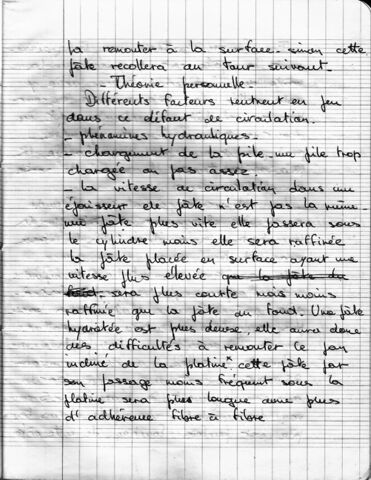 fa remonter à la surface. sinon cette
pâte recollera au tour suivant.
- Théorie personnelle -
Différents facteurs rentrent en jeu
dans ce défaut de circulation.
- phénomènes hydrauliques -
- chargement de la pile - une pile trop
chargée ou pas assez.
- la vitesse de circulation dans une
épaisseur de pâte n'est pas la même.
une pâte plus vite elle passera sous
le cylindre moins elle sera raffinée
la pâte placée en surface ayant une
vitesse plus élevée que la pâte du
fond. sera plus courte mais moins
raffinée que la pâte du fond. Une pâte
hydratée est plus dense, elle aura donc
des difficultés à remonter le pan
incliné de la platine x cette pâte par
son passage moins fréquent sous la
platine sera plus longue donc plus
d'adhérence fibre à fibre